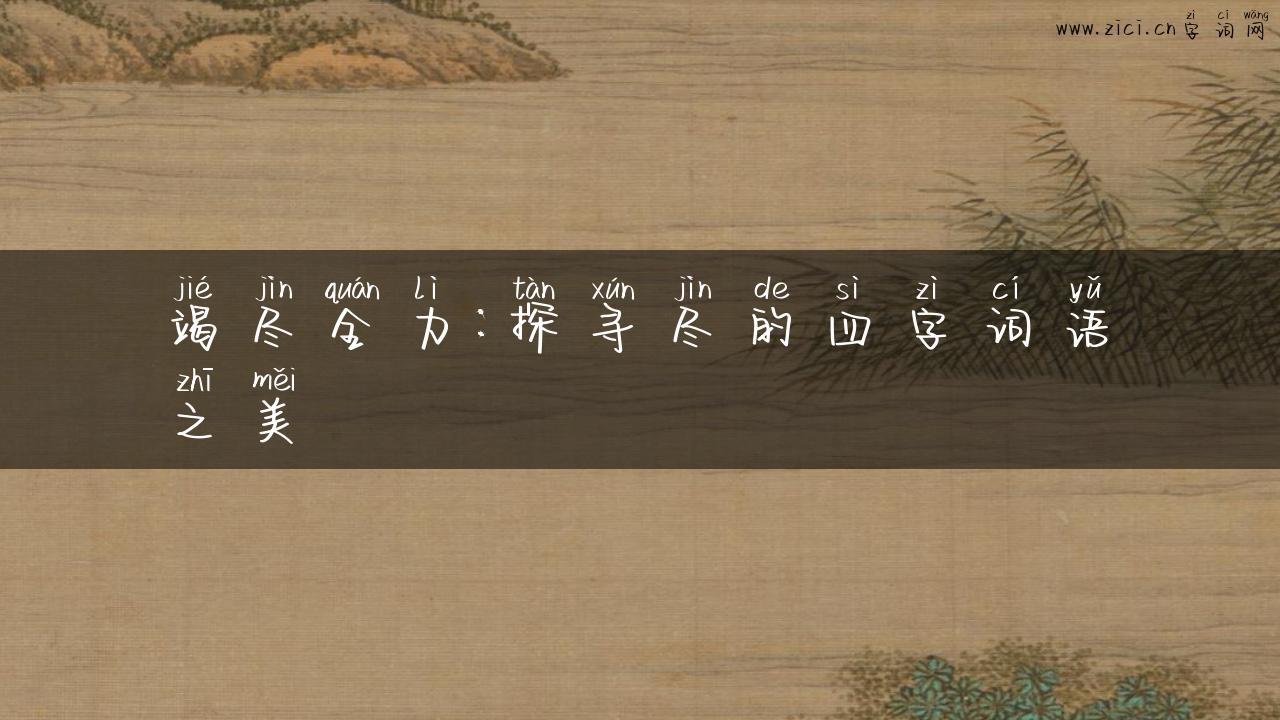 zì cí wǎng
www.zici.cn字词网
jié jìn quán lì tàn xún jìn de sì zì cí yǔ
竭尽全力:探寻尽的四字词语
zhī měi
之美